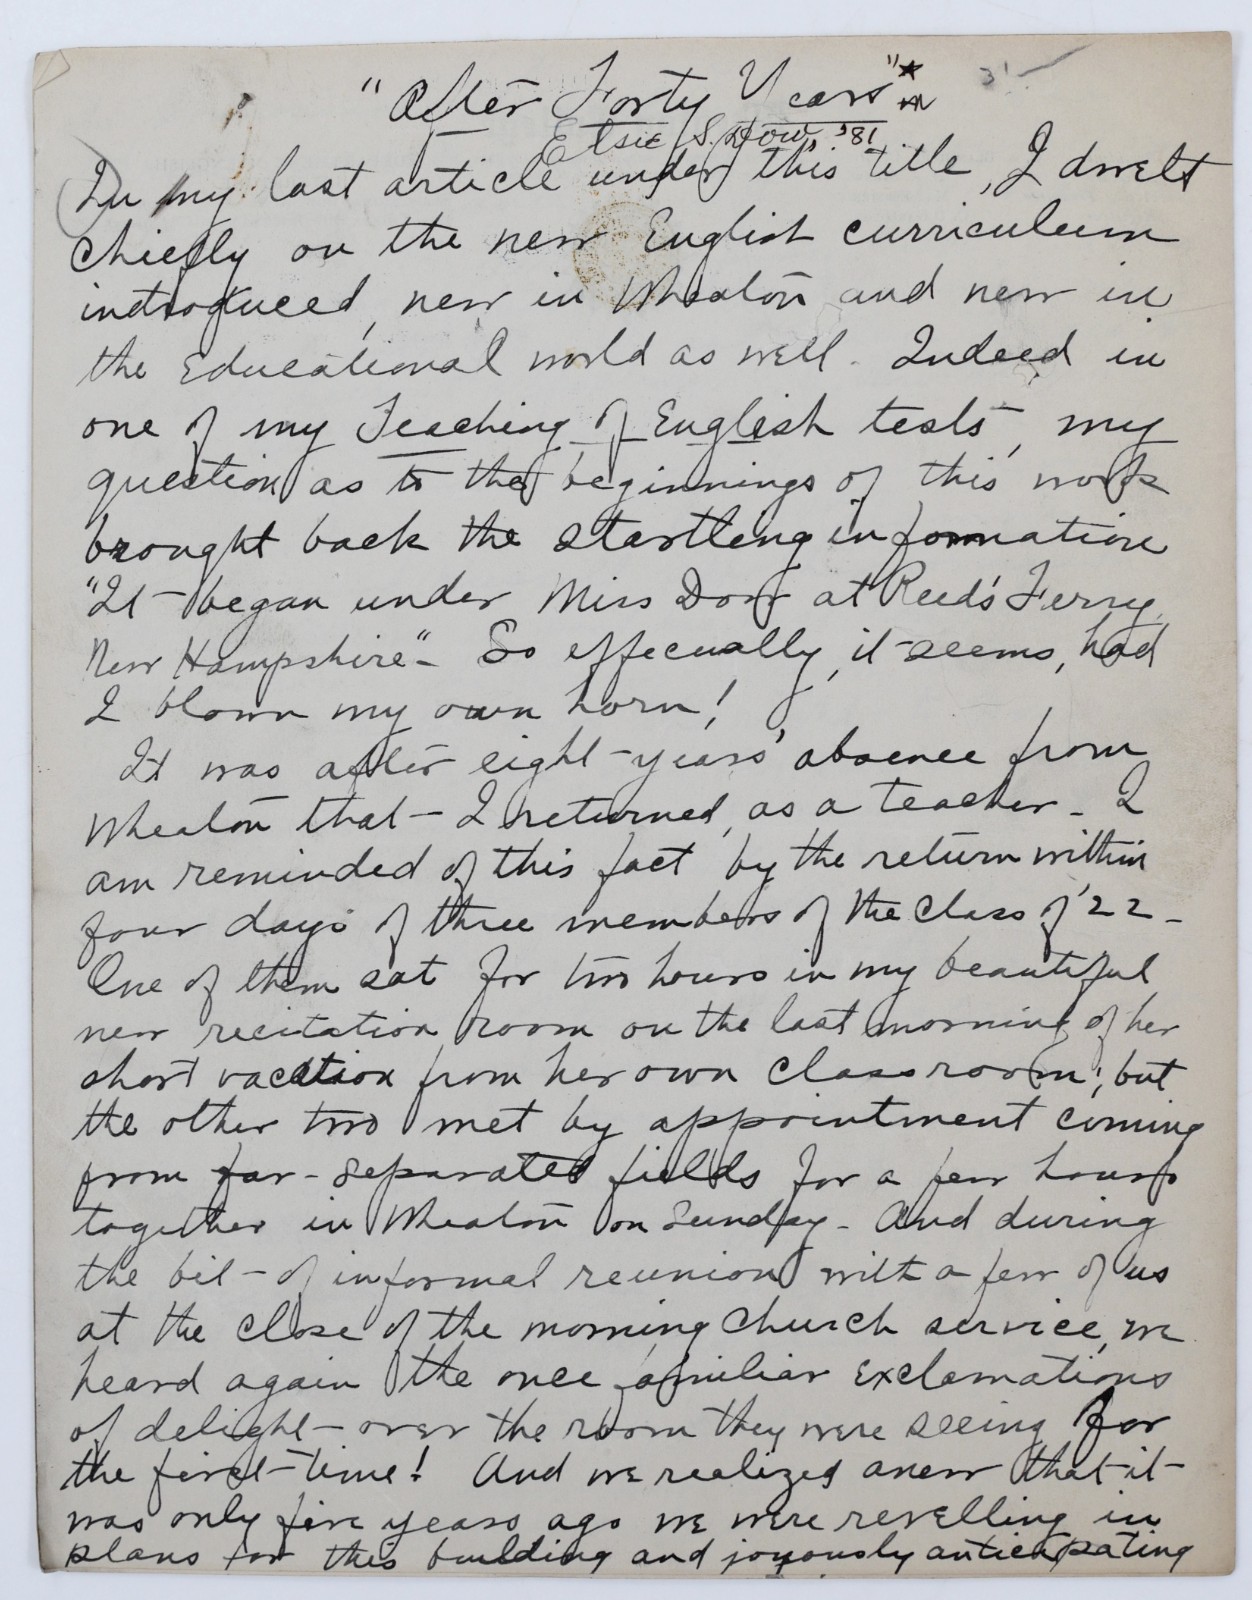 "After Forty Years"*
Elsie S. Dow, '81
In my last article under this title, I dwelt
chiefly on the new English curriculum
introduced, new in Wheaton and new in
the Educational world as well. Indeed in
one of my Teaching of English tests, my
question as to the beginnings of this work
brought back the startling information
"It began under Miss Dow at Reed's Ferry,
New Hampshire"- So effecually, it seems, had
I blown my own horn!
It was after eight years' absence from
Wheaton that I returned, as a teacher - I
am reminded of this fact by the return within
four days of three members of the class of '22 -
One of them sat for two hours in my beautiful
new recitation room on the last morning of her
short vacation from her own classroom; but
the other two met by appointment coming
from far-separated fields for a few hours
together in Wheaton on Sunday - And during
the bit of informal reunion with a few of us
at the close of the morning church service, we
heard again the once familiar exclamations
of delight over the room they were seeing for
the first time! And we realized anew that it
was only five years ago we were revelling in
plans for this building and joyously anticipating